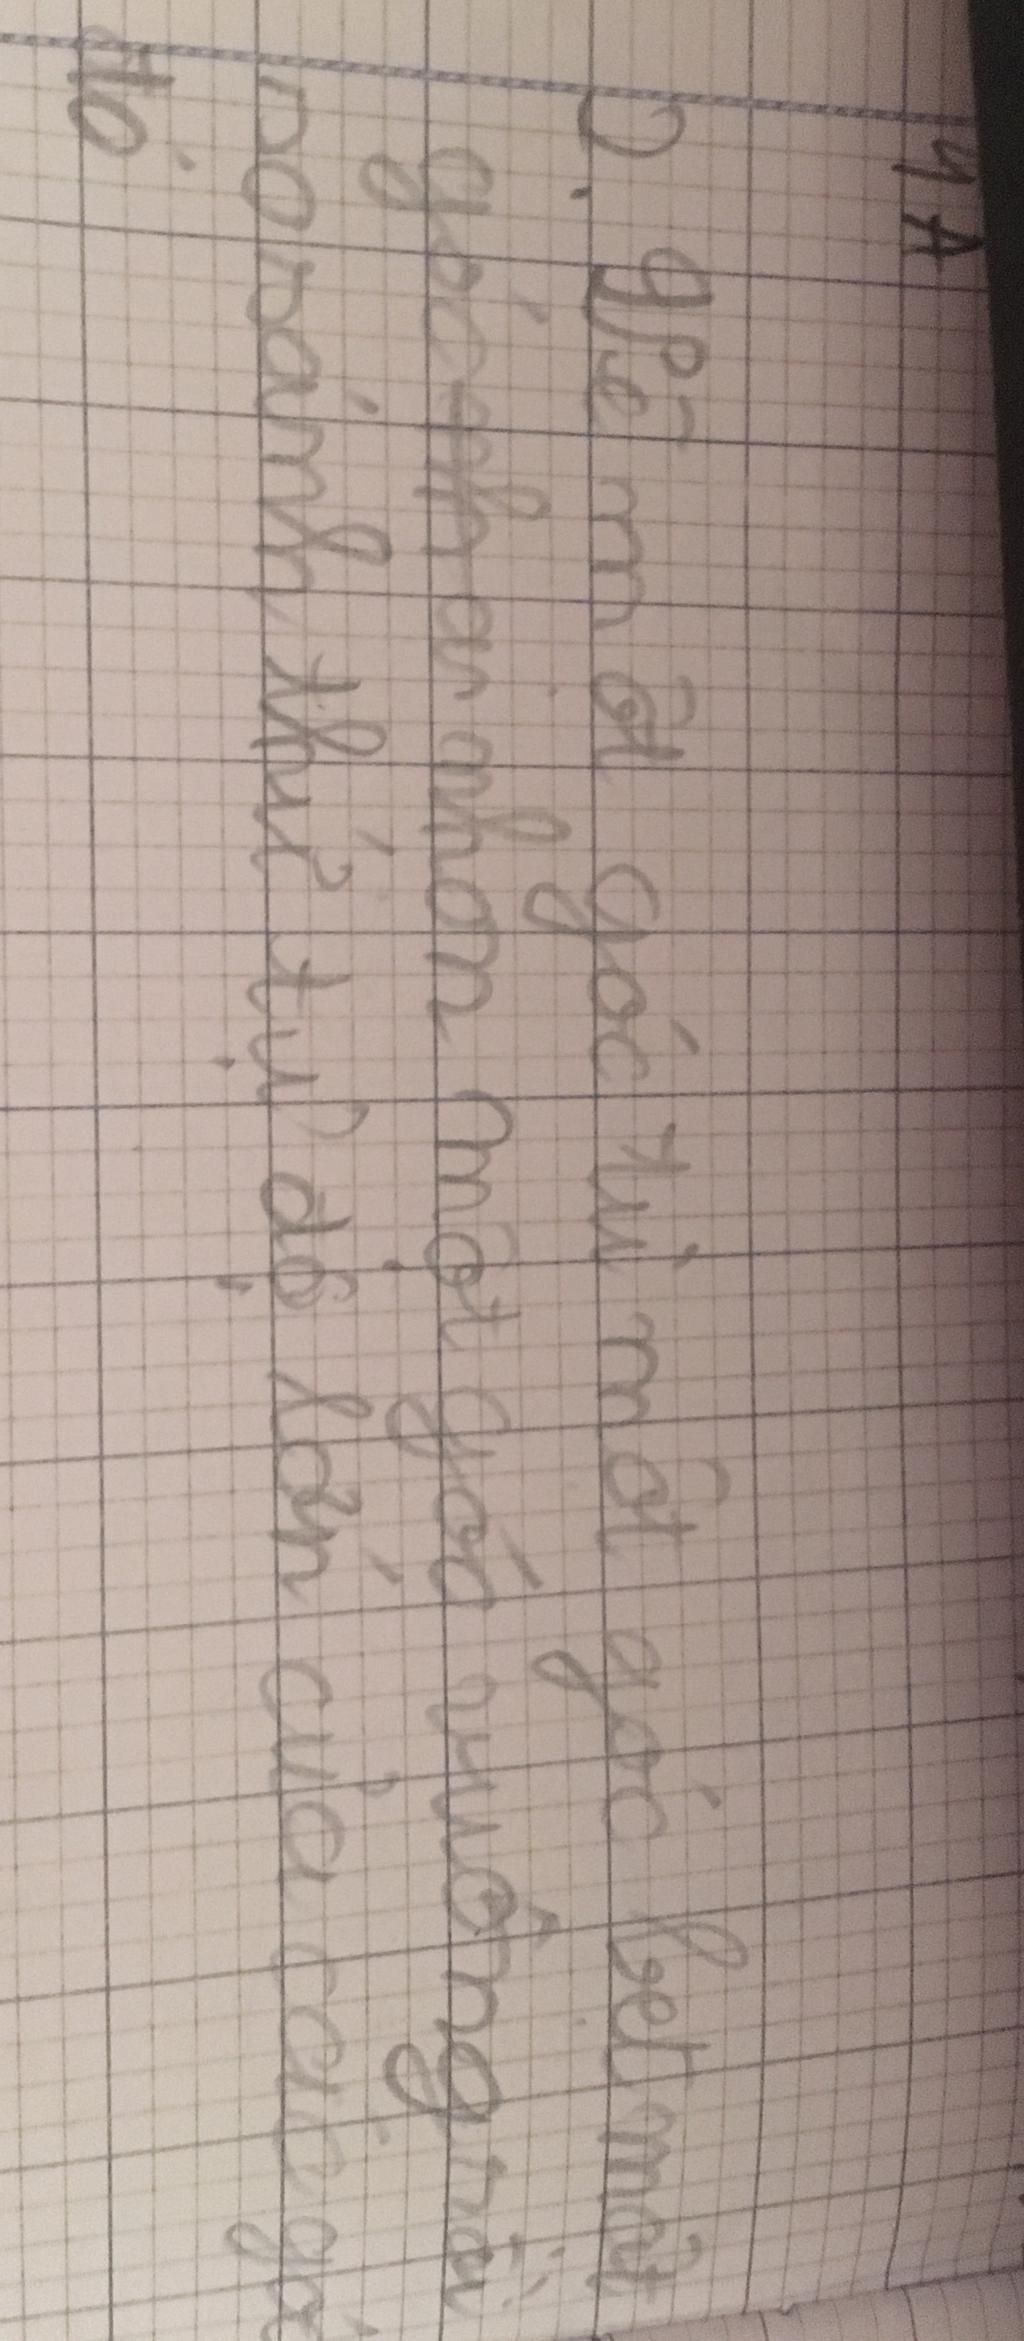 4A
2. Vẽ một góc tù một góc bẹt một
góc nhọn một góc vuông rồi
so sánh thứ tự độ lớn của các gó
đó